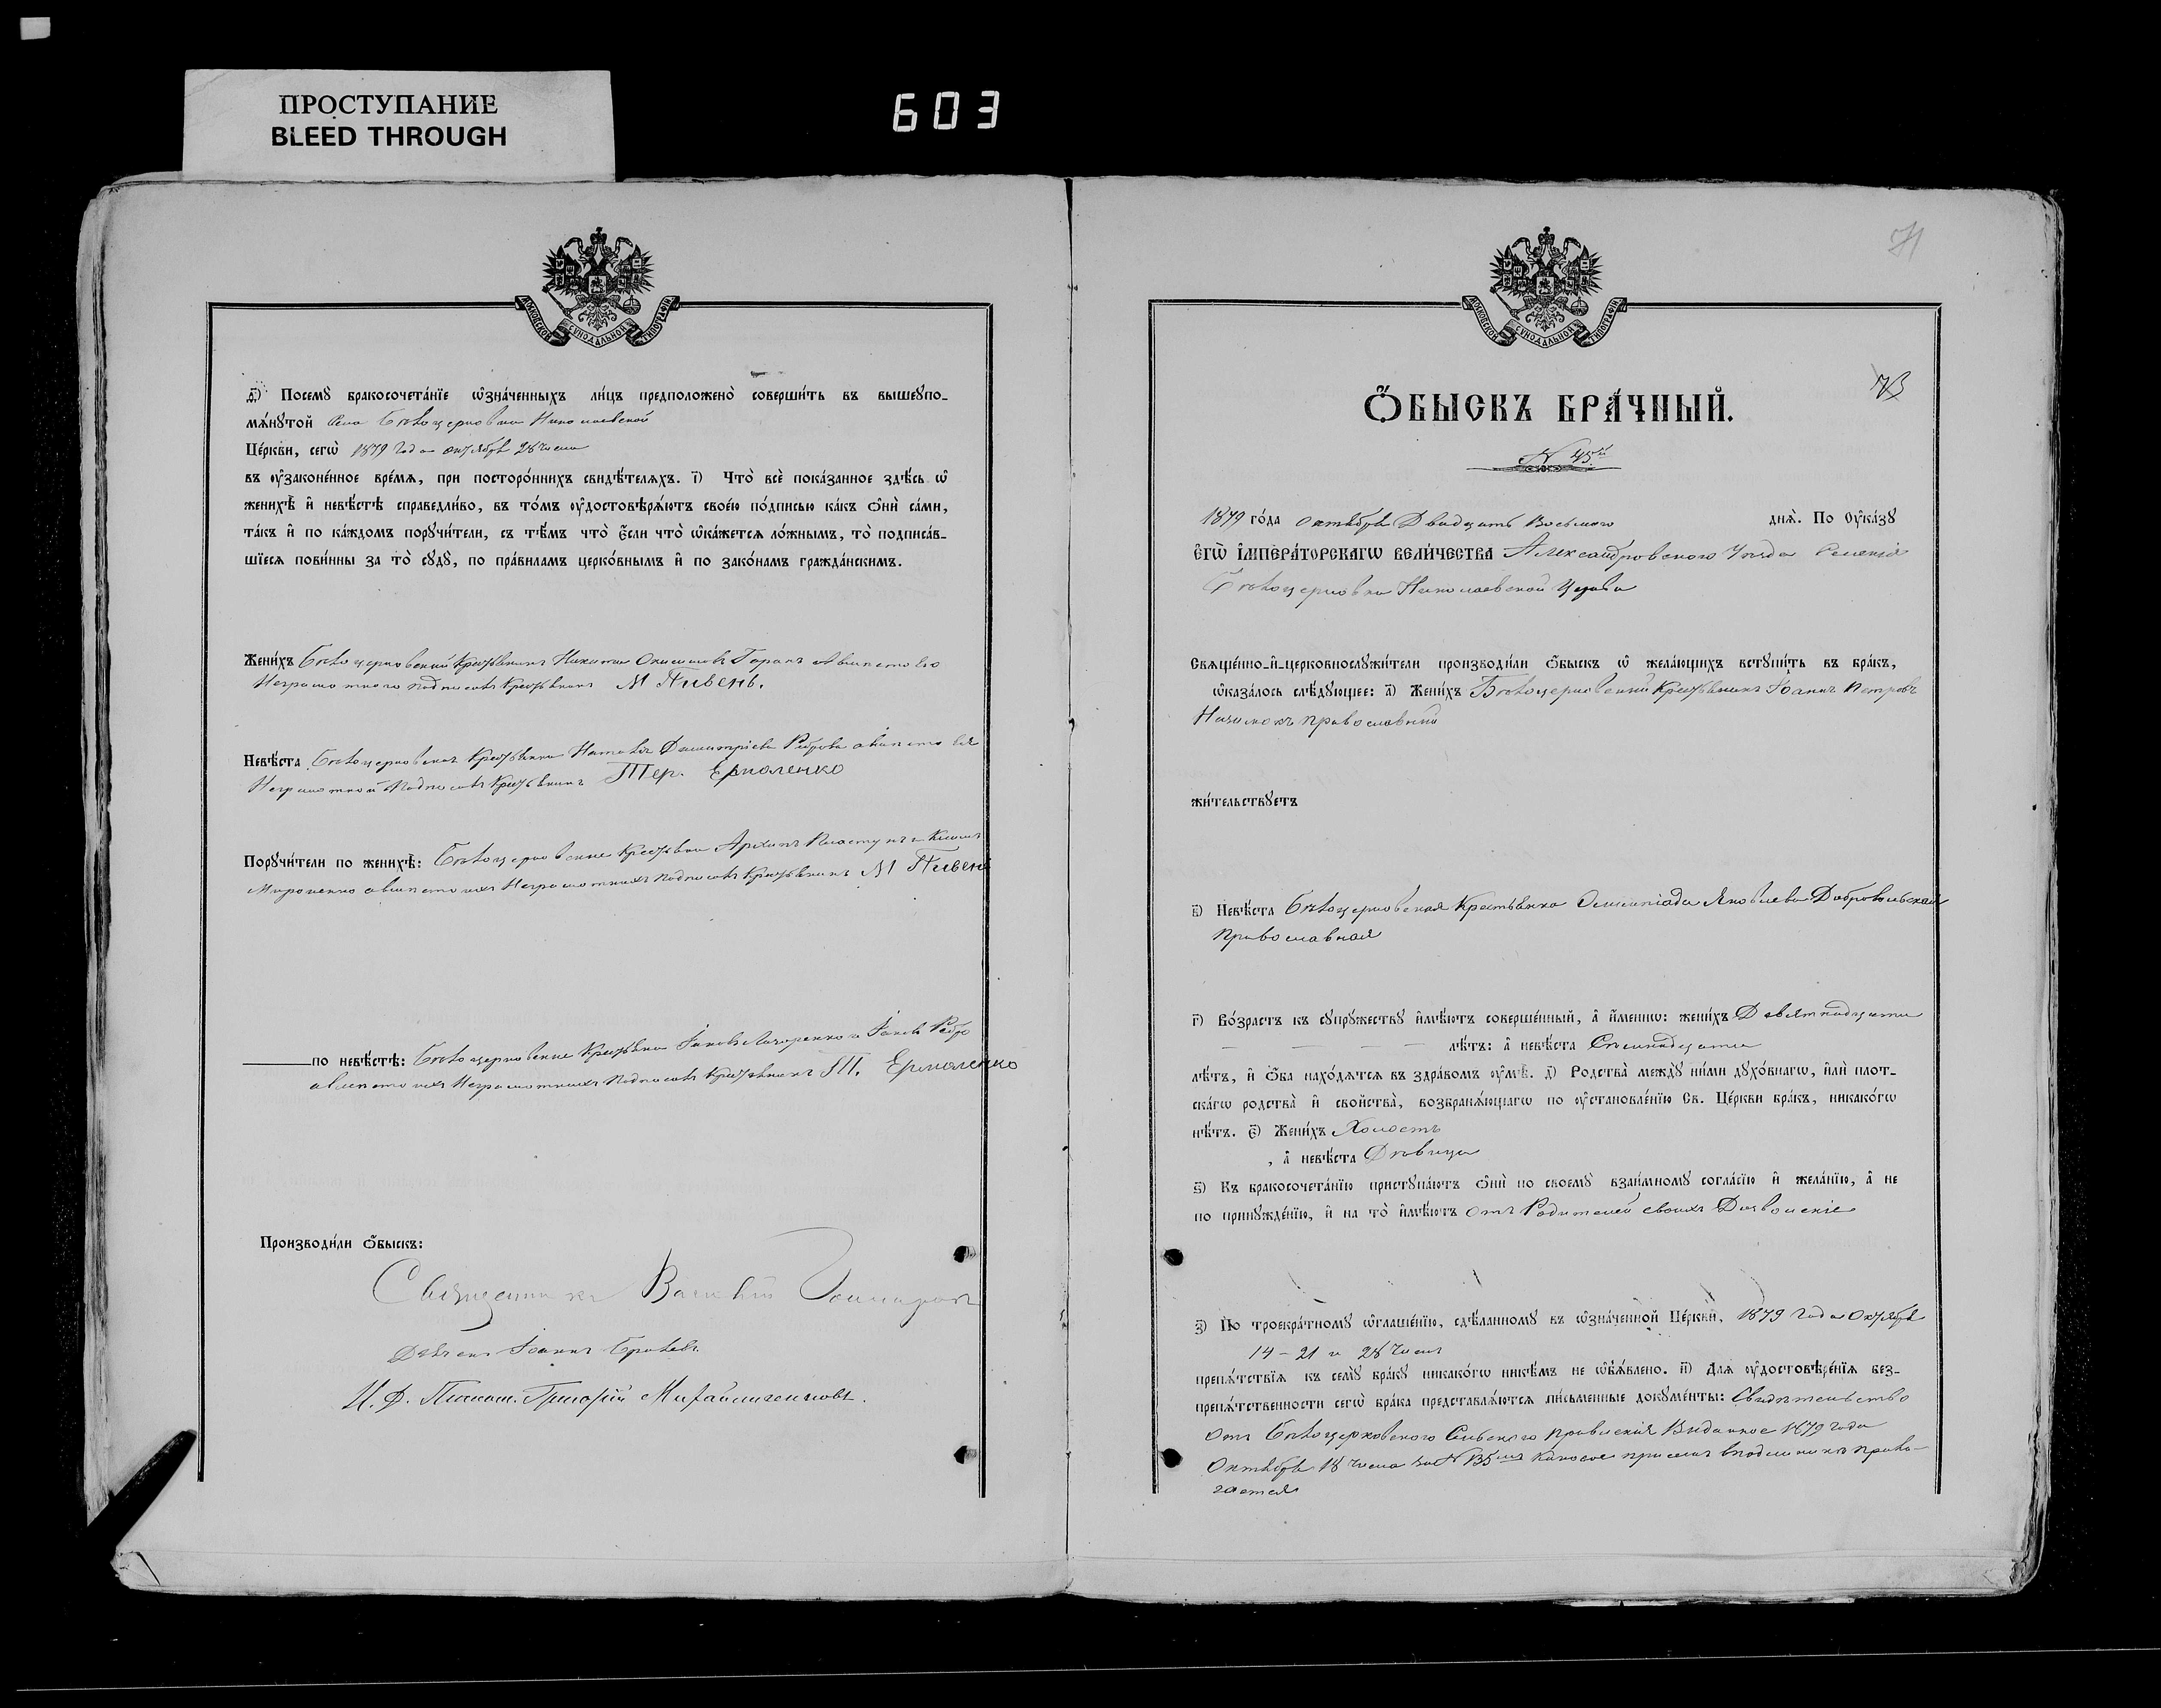 ПРОСТУПАНИЕ
BLEED THROUGH
603
МОСКОВСКОЙ СѴНОДАЛЬНОЙ ТИПОГРАФІИ
Посемꙋ̀ бракосочета́нїе ѡ҆зна́ченныхъ ли́цъ предположено̀ соверши́ть въ вышеꙋпо-
мѧ́нꙋтой Села Бѣлоцерковки Николаевской
Це́ркви, сегѡ̀ 1879 года октября 28 числа
въ ᲂу҆законе́нное вре́мѧ, при посторо́ннихъ свидѣ́телѧхъ. і҃) Что̀ всѐ пока́занное здѣ́сь ѡ҆
женихѣ̀ и҆ невѣ́стѣ справедли́во, въ то́мъ ᲂу҆достовѣрѧ́ютъ свое́ю по́дписью ка́къ ѻ҆нѝ са́ми,
та́къ и҆ по ка́ждомъ порꙋчи́тели, съ тѣ́мъ что̀ є҆́сли что̀ ѡ҆ка́жетсѧ ло́жнымъ, то̀ подписа́в-
шїесѧ пови́нны за то̀ сꙋдꙋ̀, по пра́виламъ церко́внымъ и҆ по зако́намъ гражда́нскимъ.
Жени́хъ Бѣлоцерковский Крестьянинъ Никита Онисимовъ Таранъ а вместо его
Неграмотного подписался Крестьянинъ М Пивень.
Невѣ́ста Бѣлоцерковская Крестьянка Наталія Димитріева Реброва а вместо ея
Неграмотной Подписался Крестьянинъ Тер. Ермоленко
Порꙋчи́тели по женихѣ̀: Бѣлоцерковские Крестьяне Архипъ Пластунъ и Климъ
Мироненко а вместо ихъ Неграмотныхъ подписался Крестьянинъ М Пивень
по невѣ́стѣ: Бѣлоцерковские Крестьяне Іаковъ Лазоренко и Іаковъ Ребро
а вместо ихъ Неграмотныхъ Подписался Крестьянинъ Т. Ермоленко
Производи́ли ѻ҆́быскъ:
Священникъ Василій
Дьячекъ Іоаннъ
И. Д. Псалом. Григорій Михайличенковъ.
71
МОСКОВСКОЙ СѴНОДАЛЬНОЙ ТИПОГРАФІИ
73
Ѻ҆́БЫСКЪ БРА́ЧНЫЙ.
N 45й
1879 го́да октября Двадцать Восьмого днѧ̀. По Оу҆ка́зꙋ
Є҆гѡ̀ І҆мпера́торскагѡ вели́чества Александровского Уезда Селенія
Бѣлоцерковки Николаевской Церкви
Свѧще́нно-и҆-церковнослꙋжи́тели производи́ли ѻ҆́быскъ ѡ҆ жела́ющихъ встꙋпи́ть въ бра́къ,
ѡ҆каза́лось слѣ́дꙋющее: а҃) Жени́хъ Бѣлоцерковский Крестьянинъ Іоаннъ Петровъ
православный
жи́тельствꙋетъ
в҃) Невѣ́ста Бѣлоцерковская Крестьянка Олимпіада Яковлева Добровольская
Православная
г҃) Во́зрастъ къ сꙋпрꙋ́жествꙋ и҆мѣ́ютъ соверше́нный, а҆ и҆́меннѡ: жени́хъ Девятнадцати
лѣ́тъ: а҆ невѣ́ста Семнадцати
лѣ́тъ, и҆ ѻ҆́ба нахо́дѧтсѧ въ здра́вомъ ᲂу҆мѣ̀. д҃) Родства̀ междꙋ̀ ни́ми дꙋхо́внагѡ, и҆лѝ плот-
ска́гѡ родства̀ и҆ свойства̀, возбранѧ́ющагѡ по ᲂу҆становле́нїю Св. Це́ркви бра́къ, никако́гѡ
нѣ́тъ. є҃) Жени́хъ Холостъ
, а҆ невѣ́ста Девица
ѕ҃) Къ бракосочета́нїю пристꙋпа́ютъ ѻ҆нѝ по своемꙋ̀ взаи́мномꙋ согла́сїю и҆ жела́нїю, а҆ не
по принꙋжде́нїю, и҆ на то̀ и҆мѣ́ютъ отъ Родителей своихъ Дозволеніе
з҃) По троекра́тномꙋ ѡ҆глаше́нїю, сдѣ́ланномꙋ въ ѡ҆зна́ченной Це́ркви, 1879 года Октября
14 – 21 и 28 Числ
препѧ́тствїѧ къ семꙋ̀ бра́кꙋ никако́гѡ никѣ́мъ не ѡ҆б̾ѧ́влено. и҃) Длѧ ᲂу҆достовѣре́нїѧ без-
препѧ́тственности сегѡ̀ бра́ка представлѧ́ютсѧ пи́сьменные докꙋме́нты: Свидетельство
Отъ Бѣлоцерковского Сельского правленія Виданное 1879 года
Октября 18 числа за N 135мъ каковое присемъ вподлиннике прила-
гается